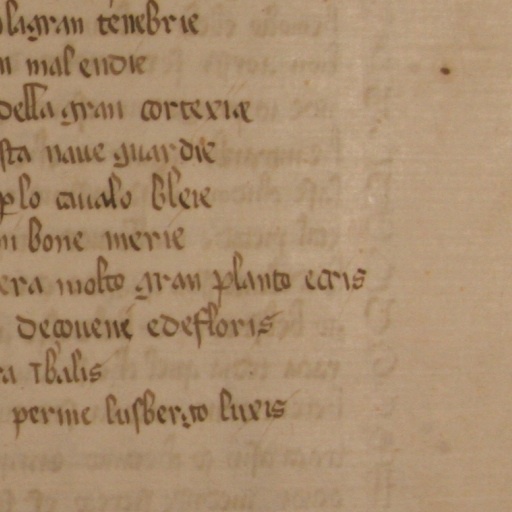 gran tenebrie
mal endie
della gran cortexie
sta naue guardie
plo caualo bleie
bone merie
era molto gran planto ecris
deçouene edefloris
ra ībalis
perine lusberto luxis